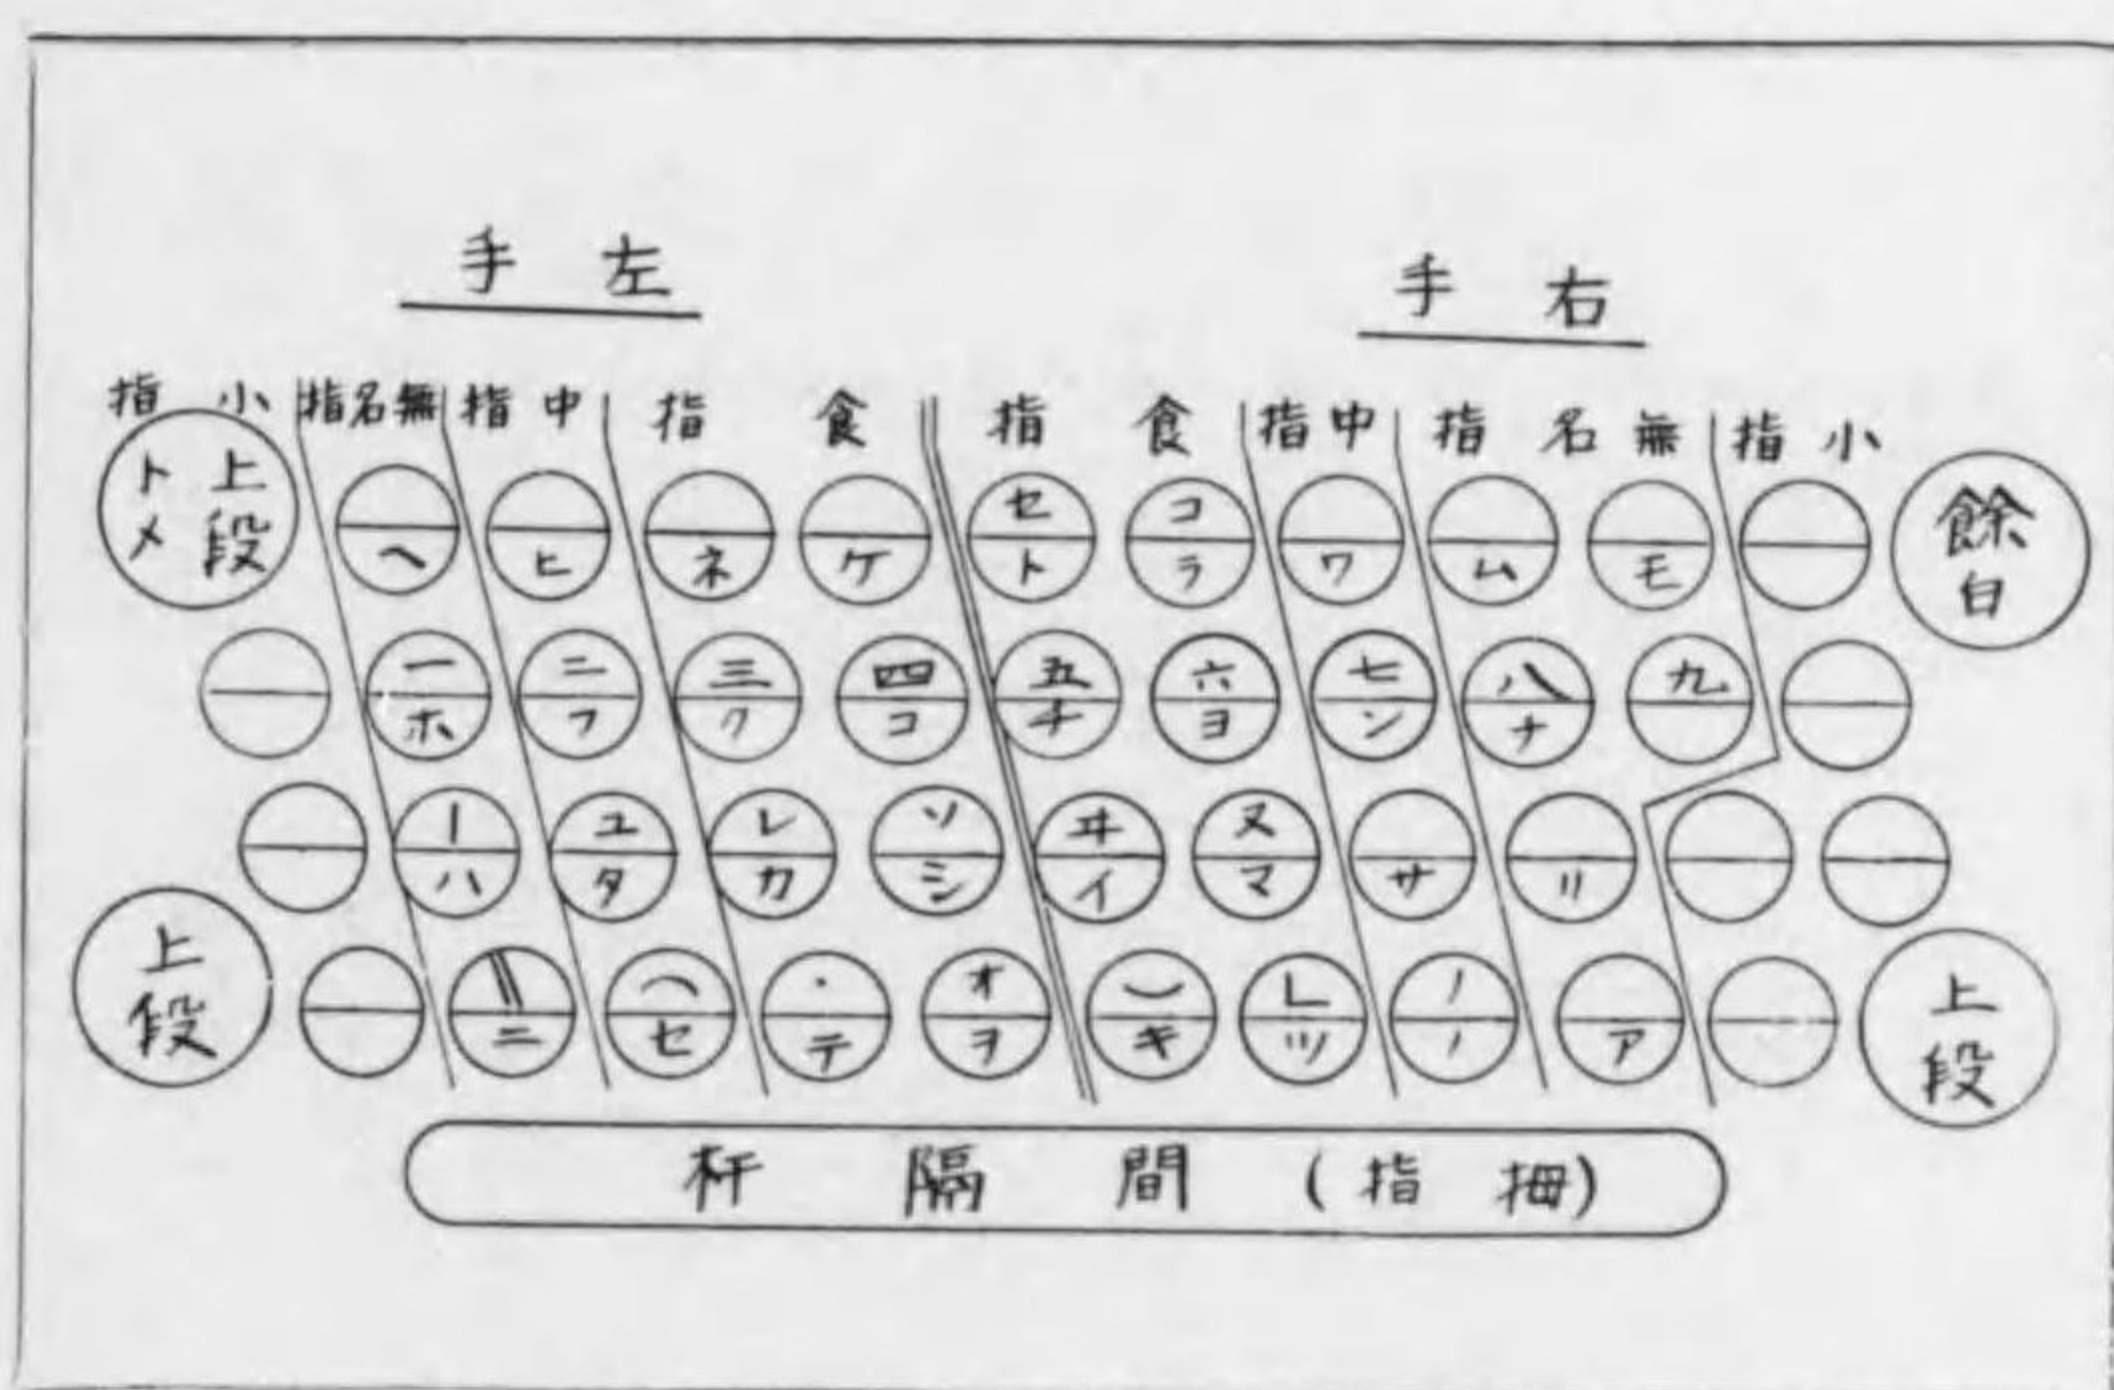 右手　左手
小指　無名指　中指　食指　食指　中指　無名指　小指
上段トメ　ヘ　ヒ　ネ　ケ　セ/ト　コ/ラ　ワ　ム　モ　餘白
一/ホ　二/フ　三/ク　四/コ　五/チ　六/ヨ　七/ン　八/ナ　九
|/ハ　ユ/タ　レ/カ　ソ/シ　ヰ/イ　ヌ/マ　サ　〃
上段　\\/ニ　⌒/セ　・/テ　オ/ヲ　‿/キ　∟/ツ　ノ/ノ　ア　上段
(拇指)間隔杆